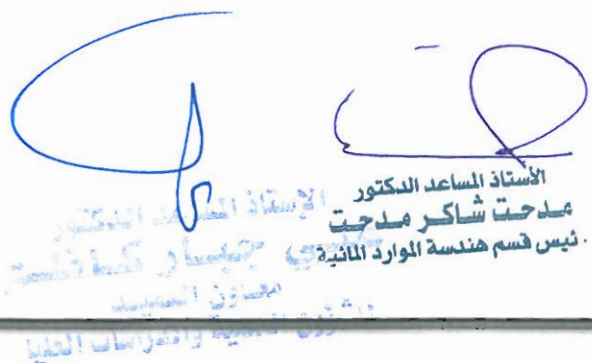 الأستاذ المساعد الدكتور
مدحت شاكر مدحت
رئيس قسم هندسة الموارد المائية
الاستاذ المساعد الدكتور
معاون العميد
للشؤون العلمية والدراسات العليا